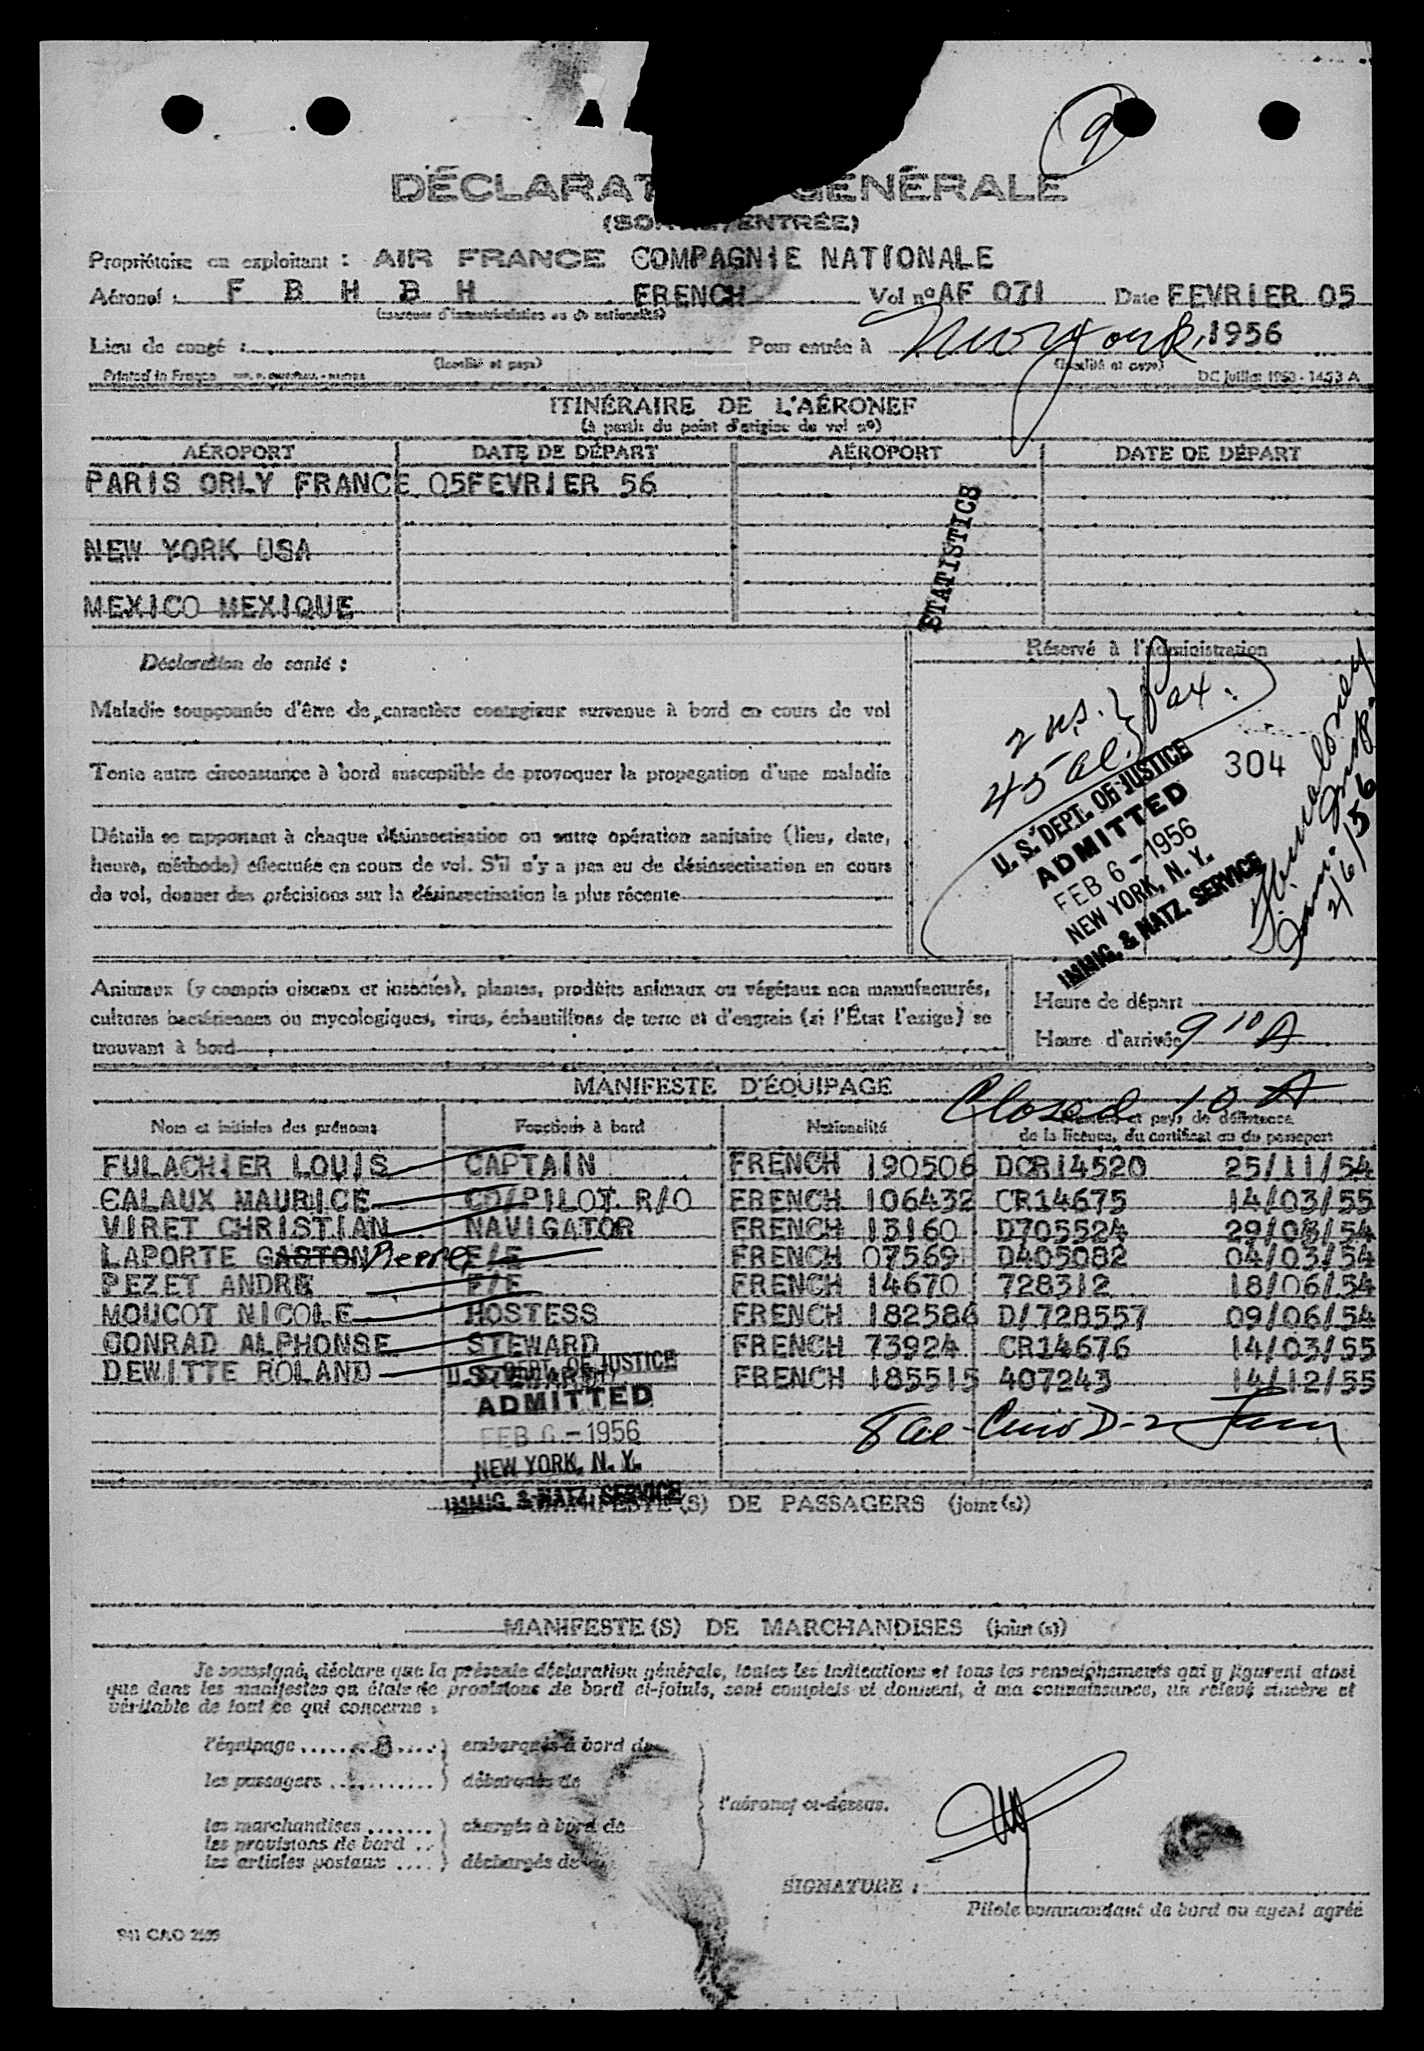 9
DÉCLARAT GÉNÉRALE
(SO ENTRÉE)
Propriétaire ou exploitant : AIR FRANCE COMPAGNIE NATIONALE
Aéronef : F B H B H FRENCH Vol nº AF 071 Date FEVRIER 05
(marques d'immatriculation ou de nationalité)
Lieu de congé : Pour entrée à New York, 1956
(localité et pays) (localité et pays)
Printed in France DC Juillet 1953 - 1453 A
ITINÉRAIRE DE L'AÉRONEF
(à partir du point d'origine du vol nº)
AÉROPORT DATE DE DÉPART AÉROPORT DATE DE DÉPART
PARIS ORLY FRANCE 05FEVRIER 56
NEW YORK USA
MEXICO MEXIQUE
STATISTICS
Déclaration de santé :
Réservé à l'administration
Maladie soupçonnée d'être de caractère contagieux survenue à bord en cours de vol
Toute autre circonstance à bord susceptible de provoquer la propagation d'une maladie
Détails se rapportant à chaque désinsectisation ou autre opération sanitaire (lieu, date,
heure, méthode) effectuée en cours de vol. S'il n'y a pas eu de désinsectisation en cours
de vol, donner des précisions sur la désinsectisation la plus récente
2 us. } Pax.
45 al. }
304
U. S. DEPT. OF JUSTICE
ADMITTED
FEB 6 - 1956
NEW YORK, N. Y.
IMMIG. & NATZ. SERVICE
2/6/56
Animaux (y compris oiseaux et insectes), plantes, produits animaux ou végétaux non manufacturés,
cultures bactériennes ou mycologiques, virus, échantillons de terre et d'engrais (si l'État l'exige) se
trouvant à bord
Heure de départ
Heure d'arrivée 9 10 A
MANIFESTE D'ÉQUIPAGE Closed 10 A
Nom et initiales des prénoms Fonctions à bord Nationalité Numéro et pays de délivrance
de la licence, du certificat ou du passeport
FULACHIER LOUIS CAPTAIN FRENCH 190506 DCR14520 25/11/54
CALAUX MAURICE CO/PILOT R/O FRENCH 106432 CR14675 14/03/55
VIRET CHRISTIAN NAVIGATOR FRENCH 13160 D705524 29/08/54
LAPORTE GASTON Pierre F/E FRENCH 07569 D405082 04/03/54
PEZET ANDRE F/E FRENCH 14670 728312 18/06/54
MOUCOT NICOLE HOSTESS FRENCH 182586 D/728557 09/06/54
CONRAD ALPHONSE STEWARD FRENCH 73924 CR14676 14/03/55
DEWITTE ROLAND FRENCH 185515 407243 14/12/55
U. S. DEPT. OF JUSTICE
ADMITTED
FEB 6 - 1956
NEW YORK, N. Y.
IMMIG. & NATZ. SERVICE
MANIFESTE(S) DE PASSAGERS (joint(s))
MANIFESTE(S) DE MARCHANDISES (joint(s))
Je soussigné, déclare que la présente déclaration générale, toutes les indications et tous les renseignements qui y figurent ainsi
que dans les manifestes ou états de provisions de bord ci-joints, sont complets et donnent, à ma connaissance, un relevé sincère et
véritable de tout ce qui concerne :
l'équipage ....... 8 ....} embarqués à bord de
les passagers ...........} débarqués de
l'aéronef ci-dessus.
les marchandises .......} chargés à bord de
les provisions de bord ..
les articles postaux ....} déchargés de
SIGNATURE :
Pilote commandant de bord ou agent agréé